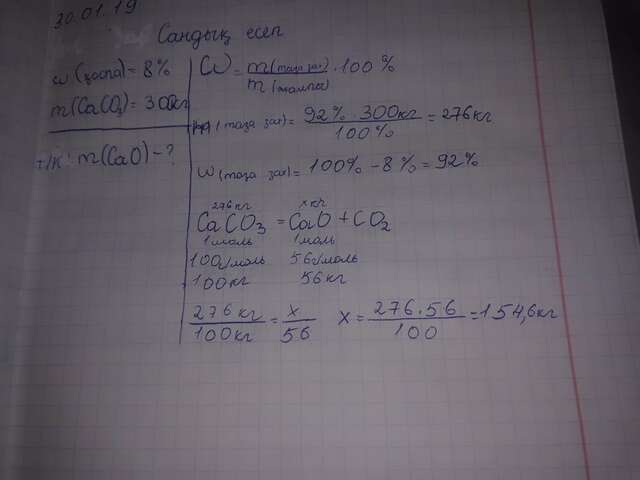 30.01.19
Сандық есеп
w (қоспа) = 8%
m(CaCO3) = 300кг
т/к: m(CaO) - ?
W = m(таза зат) / m(жалпы) · 100%
m (таза зат) = 92% · 300кг / 100% = 276кг
w (таза зат) = 100% - 8% = 92%
276кг x кг
CaCO3 = CaO + CO2
1моль 1моль
100г/моль 56г/моль
100кг 56кг
276 кг / 100кг = x / 56 x = 276 · 56 / 100 = 154,6кг